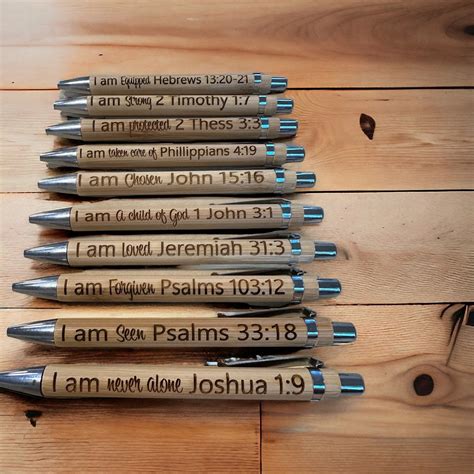 I am Equipped Hebrews 13:20-21
I am Strong 2 Timothy 1:7
I am protected 2 Thess 3:3
I am taken care of Phillippians 4:19
I am Chosen John 15:16
I am A child of God 1 John 3:1
I am Loved Jeremiah 31:3
I am Forgiven Psalms 103:12
I am Seen Psalms 33:18
I am never alone Joshua 1:9